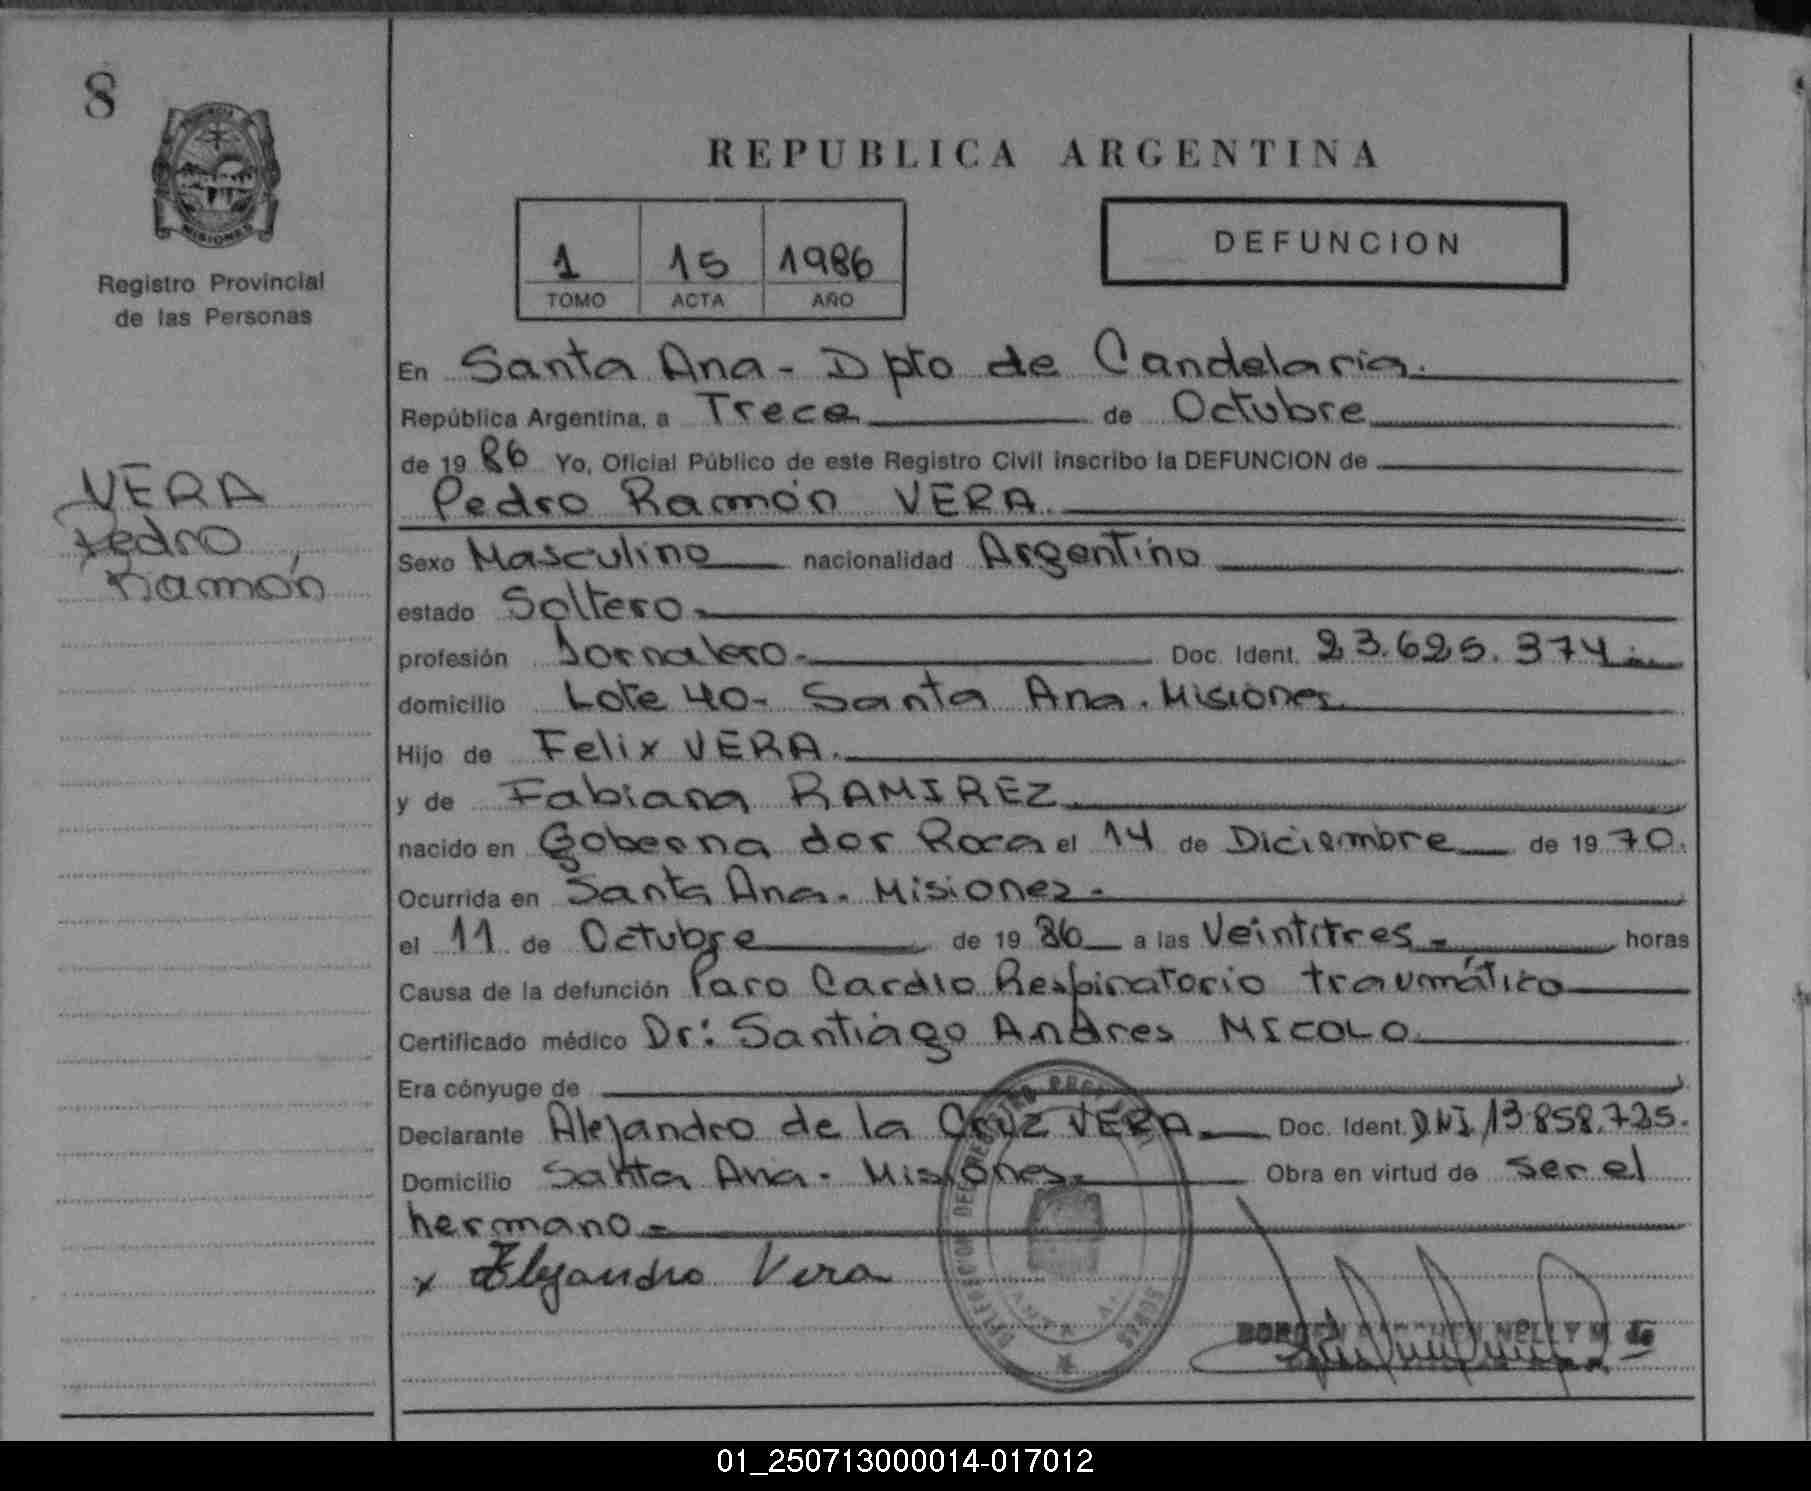 8
MISIONES
Registro Provincial
de las Personas
VERA
Pedro
Ramón
REPUBLICA ARGENTINA
1 15 1986
TOMO ACTA AÑO
DEFUNCION
En Santa Ana - Dpto de Candelaria.
República Argentina, a Trece de Octubre
de 19 86 Yo, Oficial Público de este Registro Civil inscribo la DEFUNCION de
Pedro Ramón VERA.
Sexo Masculino nacionalidad Argentino
estado Soltero.
profesión Jornalero.- Doc. Ident. 23.625.374.-
domicilio Lote 40- Santa Ana. Misiones.
Hijo de Felix VERA.
y de Fabiana RAMIREZ
nacido en Goberna dor Roca el 14 de Diciembre de 19 70.
Ocurrida en Santa Ana. Misiones.-
el 11 de Octubre de 19 86 a las Veintitres.- horas
Causa de la defunción Paro Cardio Respiratorio traumático
Certificado médico Dr: Santiago Andres MICOLO.
Era cónyuge de
Declarante Alejandro de la Cruz VERA. Doc. Ident. DNI 13.858.725.
Domicilio Santa Ana. Misiones. Obra en virtud de ser el
hermano.-
x Alejandro Vera
NELLY M. de
01_250713000014-017012